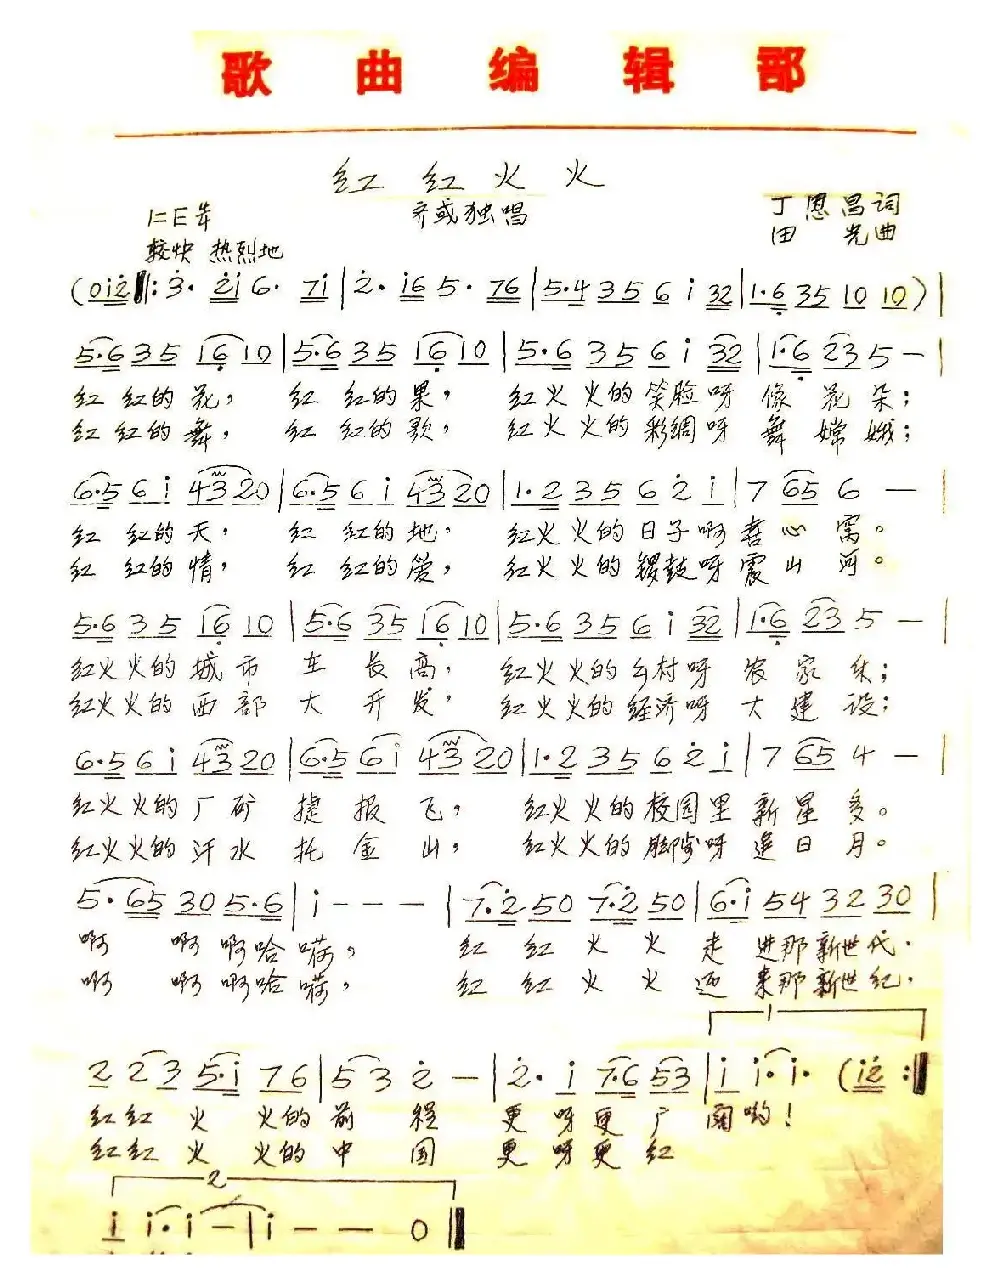 歌曲编辑部
红红火火
1=E 4/4 齐或独唱 丁恩昌词
较快 热烈地 田光曲
(0i̇2̇ ‖: 3̇· 2̇i̇ 6· 7i̇ | 2̇· i̇6 5· 76 | 5·4 35 6 i̇ 32 | 1·6̣ 35 10 10 ) |
5·6 35 16̣ 10 | 5·6 35 16̣ 10 | 5·6 35 6 i̇ 32 | 1·6̣ 23 5 — |
红 红的 花, 红 红的 果, 红火火的笑脸呀 像花朵;
红 红的 舞, 红 红的 歌, 红火火的彩绸呀 舞嫦娥;
6·5 6i̇ 43 20 | 6·5 6i̇ 43 20 | 1·2 35 6 2̇ i̇ | 7 65 6 — |
红 红的 天, 红 红的 地, 红火火的日子啊喜心窝。
红 红的 情, 红 红的 爱, 红火火的锣鼓呀震山河。
5·6 35 16̣ 10 | 5·6 35 16̣ 10 | 5·6 35 6i̇ 32 | 1·6̣ 23 5 — |
红火火的城市 在长高, 红火火的乡村呀 农家乐;
红火火的西部 大开发, 红火火的经济呀 大建设;
6·5 6i̇ 43 20 | 6·5 6i̇ 43 20 | 1·2 35 6 2̇ i̇ | 7 65 4 — |
红火火的厂矿 捷报飞, 红火火的校园里新星多。
红火火的汗水 托金山, 红火火的脚步呀追日月。
5·65 30 5·6 | i̇ — — — | 7·2̇ 50 7·2̇ 50 | 6·i̇ 54 32 30 |
啊 啊啊哈嗬, 红 红火火 走进那新世代,
啊 啊啊哈嗬, 红 红火火 迎来那新世纪,
1
2 23 5·i̇ 76 | 5 3 2̇ — | 2̇· i̇ 7·6 53 | i̇ i̇· i̇· (i̇2̇ :‖
红红火 火的前程 更呀更广 阔哟!
红红火 火的中国 更呀更红
2
i̇ i̇· i̇ — | i̇ — — 0 ‖